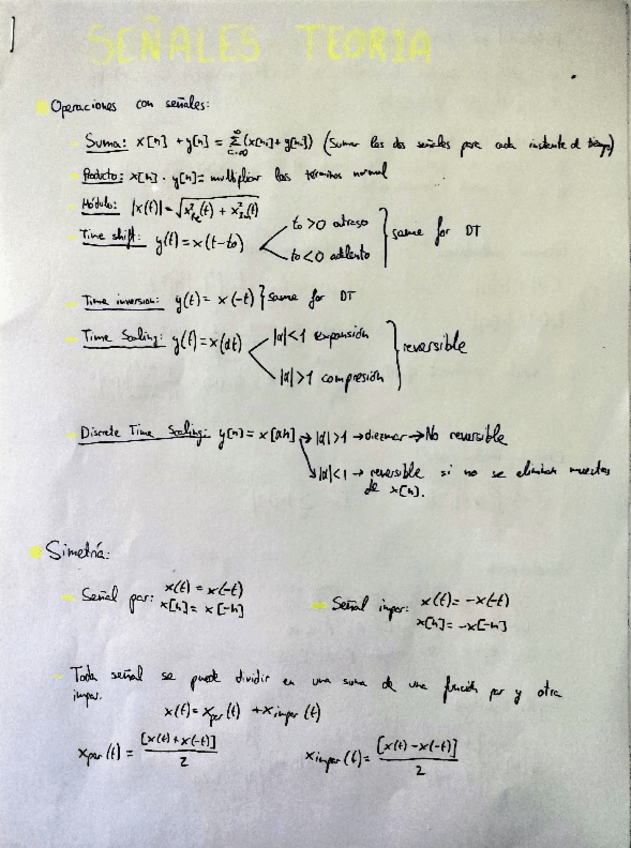 SEÑALES TEORÍA
Operaciones con señales:
- Suma: x[n] + y[n] = ∑_{i=-∞}^{∞} (x[ni] + y[ni]) (Sumar las dos señales para cada instante de tiempo)
- Producto: x[n] · y[n] = multiplicar los términos normal
- Módulo: |x(t)| = √(x²Re(t) + x²Im(t))
- Time shift: y(t) = x(t-to) < to > 0 atraso
to < 0 adelanto } same for DT
- Time inversion: y(t) = x(-t) } same for DT
- Time Scaling: y(t) = x(αt) < |α| < 1 expansión
|α| > 1 compresión } reversible
- Discrete Time Scaling: y[n] = x[αn] → |α| > 1 → diezmar → No reversible
→ |α| < 1 → reversible si no se eliminan muestras
de x[n].
Simetría:
- Señal par: x(t) = x(-t)
x[n] = x[-n]
- Señal impar: x(t) = -x(-t)
x[n] = -x[-n]
- Toda señal se puede dividir en una suma de una función par y otra
impar.
x(t) = xpar(t) + ximpar(t)
xpar(t) = [x(t) + x(-t)] / 2
ximpar(t) = [x(t) - x(-t)] / 2